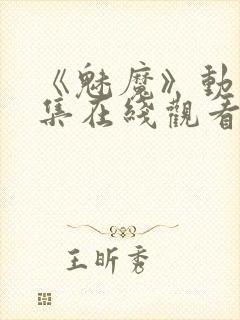 《魅魔》動
集在綫觀看
王昕秀